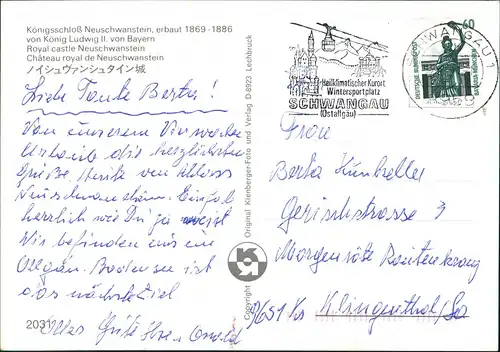 Königsschloß Neuschwanstein, erbaut 1869-1886
von König Ludwig II. von Bayern
Royal castle Neuschwanstein
Château royal de Neuschwanstein
ノイシュヴァンシュタイン城
Liebe Tante Berta!
Von unserem
Urlaub die herzlichsten
Grüße. Heute von Schloss
Neuschwanstein. Einfach
herrlich wie Du ja weist
Wir befinden uns im
Allgäu. Bodensee ist
das nächste Ziel
Alles Gute Ihre
2031
Copyright Original Kienberger-Foto und Verlag D-8923 Lechbruck
Heilklimatischer Kurort
Wintersportplatz
SCHWANGAU
(Ostallgäu)
SCHWANGAU 1
60
DEUTSCHE BUNDESPOST
Frau
Berta
Gerichtsstrasse 3
Morgenröte Rautenkranz
Klingenthal/Sa